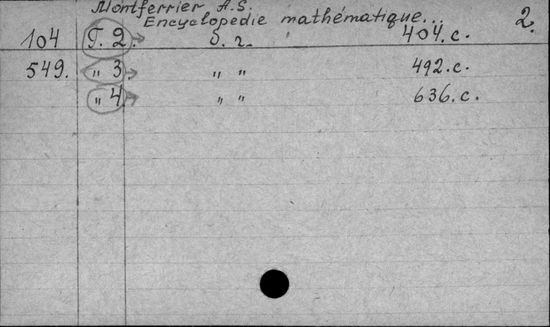 Montferrier A.S.
Encyclopedie mathématique... 2.
104 T. 2. б. г. 404.c.
549. " 3. " " 492.c.
" 4. " " 636.c.